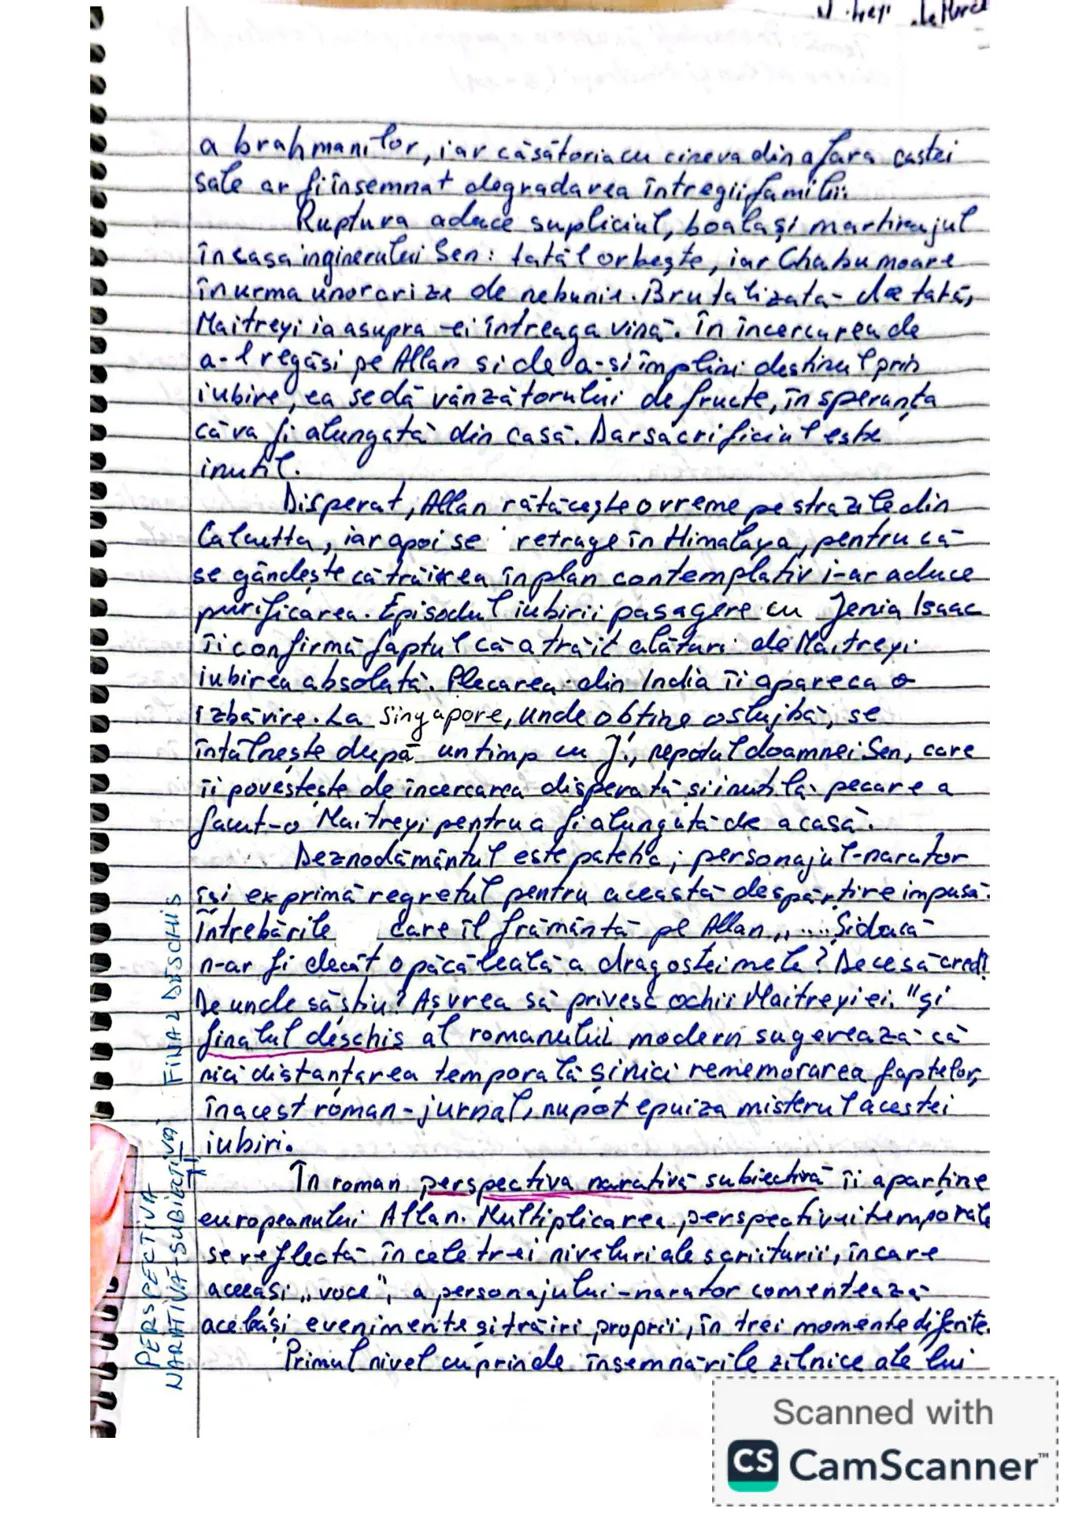 a brahmanilor, iar căsătoria cu cineva din afara castei
sale ar fi însemnat degradarea întregii familii.
Ruptura aduce supliciul, boala și martirajul
în casa inginerului Sen: tatăl orbește, iar Chabu moare
în urma unor crize de nebunie. Brutalizată de tată,
Maitreyi ia asupra-ei întreaga vină. În încercarea de
a-l regăsi pe Allan si de a-si împlini destinul prin
iubire, ea se dă vânzătorului de fructe, în speranța
că va fi alungată din casă. Dar sacrificiul este
inutil.
Disperat, Allan rătăcește o vreme pe strazile din
Calcutta, iar apoi se retrage în Himalaya, pentru că
se gândește că trăirea în plan contemplativ i-ar aduce
purificarea. Episodul iubirii pasagere cu Jenia Isaac
îi confirmă faptul că a trăit alături de Maitreyi
iubirea absolută. Plecarea din India îi apare ca o
izbăvire. La Singapore, unde obține o slujbă, se
întâlnește după un timp cu J., nepotul doamnei Sen, care
îi povestește de încercarea disperată și inutilă pe care a
făcut-o Maitreyi pentru a fi alungată de acasă.
Deznodământul este patetic; personajul-narator
își exprimă regretul pentru această despărțire impusă.
Întrebările care îl frământă pe Allan „... Și dacă
n-ar fi decât o păcăleală a dragostei mele? De ce să cred?
De unde să știu? Aș vrea să privesc ochii Maitreyiei." și
finalul deschis al romanului modern sugerează că
nici distanțarea temporală și nici rememorarea faptelor,
în acest roman-jurnal, nu pot epuiza misterul acestei
iubiri.
FINAL DESCHIS
În roman perspectiva narativă subiectivă îi aparține
europeanului Allan. Multiplicarea perspectivei temporale
se reflectă în cele trei niveluri ale scriiturii, în care
aceeași „voce", a personajului-narator comentează
aceleași evenimente și trăiri proprii, în trei momente diferite.
Primul nivel cuprinde însemnările zilnice ale lui
PERSPECTIVA
NARATIVĂ SUBIECTIVĂ
Scanned with
CS CamScanner™